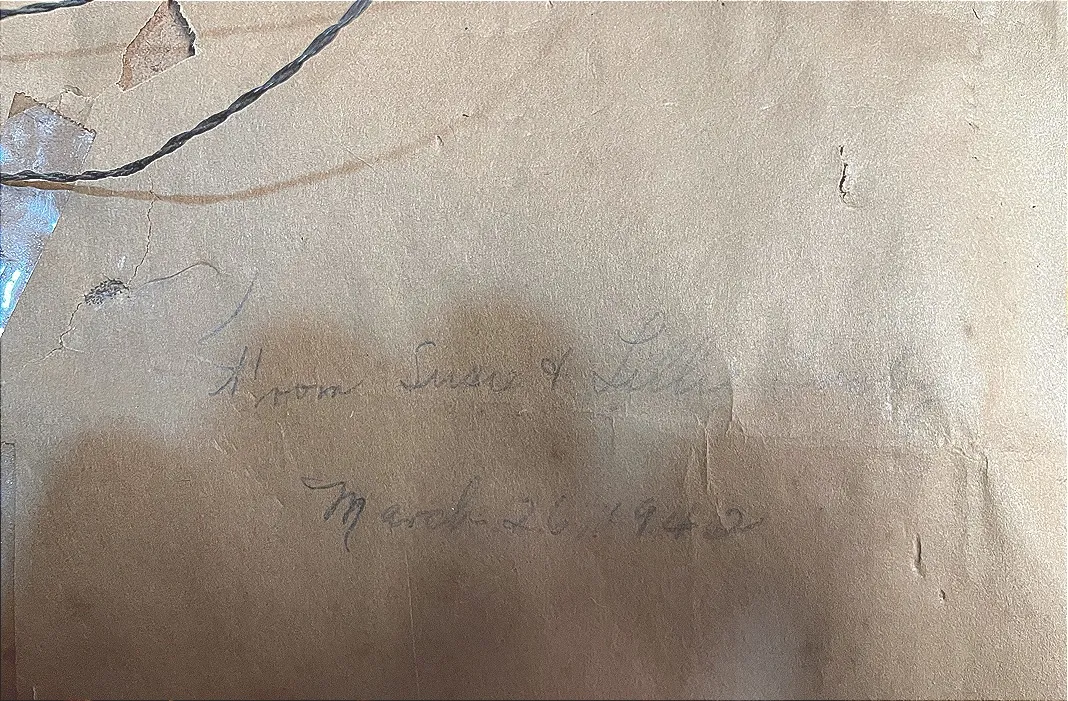 From Susie & Lillie
March 26, 1942